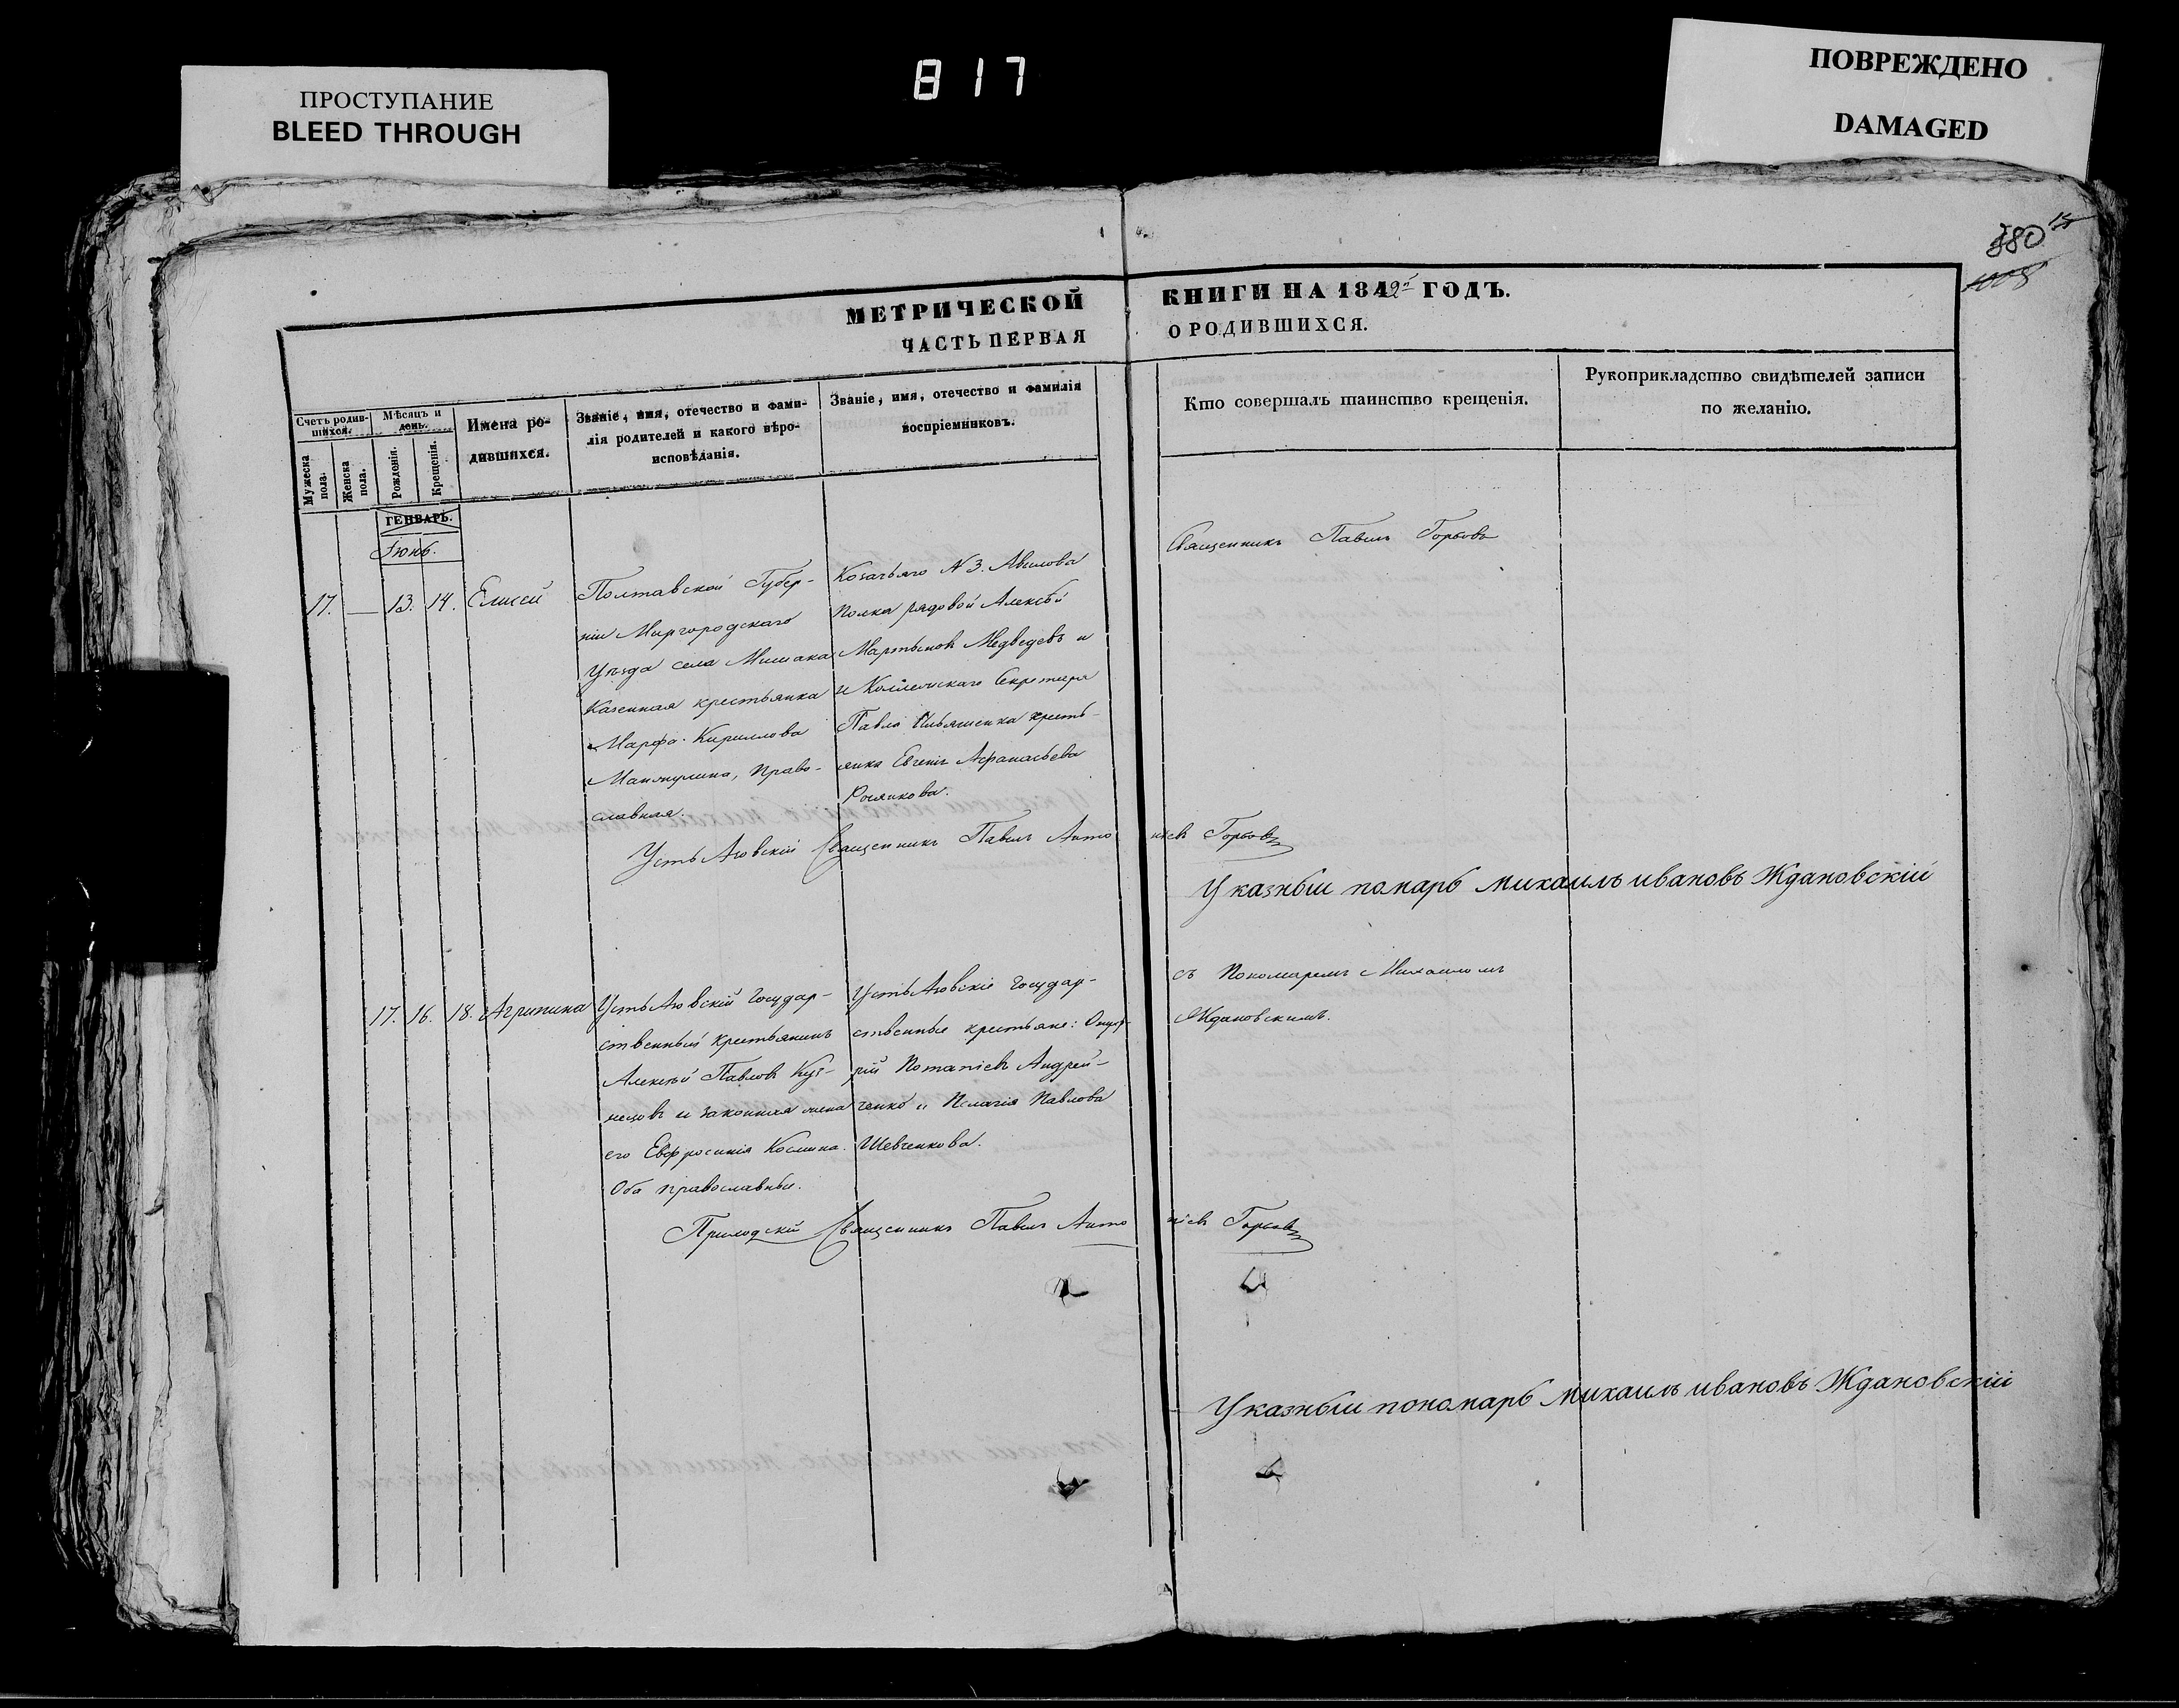 ПРОСТУПАНИЕ
BLEED THROUGH
817
ПОВРЕЖДЕНО
DAMAGED
380
15
1008
МЕТРИЧЕСКОЙ КНИГИ НА 1842й ГОДЪ.
ЧАСТЬ ПЕРВАЯ О РОДИВШИХСЯ.
Счетъ родив-
шихся.
Мужеска
пола.
Женска
пола.
Мѣсяцъ и
день.
Рожденія.
Крещенія.
Имена ро-
дившихся.
Званіе, имя, отечество и фами-
лія родителей и какого вѣро-
исповѣданія.
Званіе, имя, отечество и фамилія
воспріемниковъ.
Кто совершалъ таинство крещенія.
Рукоприкладство свидѣтелей записи
по желанію.
ГЕНВАРЬ.
Іюнь.
17. — 13. 14. Елисей
Полтавской Губер-
ніи Миргородскаго
Уѣзда села
Казенная крестьянка
Марфа Кириллова
право-
славная.
Козачьяго N 3. Авилова
полка рядовой Алексѣй
Мартыновъ Медведевъ и
Секретаря
Павла Ильяшенка кресть-
янка Евгенія Афанасьева
Священникъ Павелъ Горбовъ
Усть Азовскій Священникъ Павелъ Антоніевъ Горбовъ
Указныи понарь михаилъ ивановъ Ждановскіи
17. 16. 18. Агрипина
Усть Азовскій Государ-
ственный крестьянинъ
Алексѣй Павловъ Куз-
нецовъ и законная жена
его Евфросинія Космина.
Оба православные.
Усть Азовскіе Государ-
ственные крестьяне:
рій Потапіевъ Андрей-
ченко и Пелагія Павлова
Шевченкова.
съ Пономаремъ Михаиломъ
Ждановскимъ.
Приходскій Священникъ Павелъ Антоніевъ Горбовъ
Указныи пономарь михаилъ ивановъ Ждановскіи